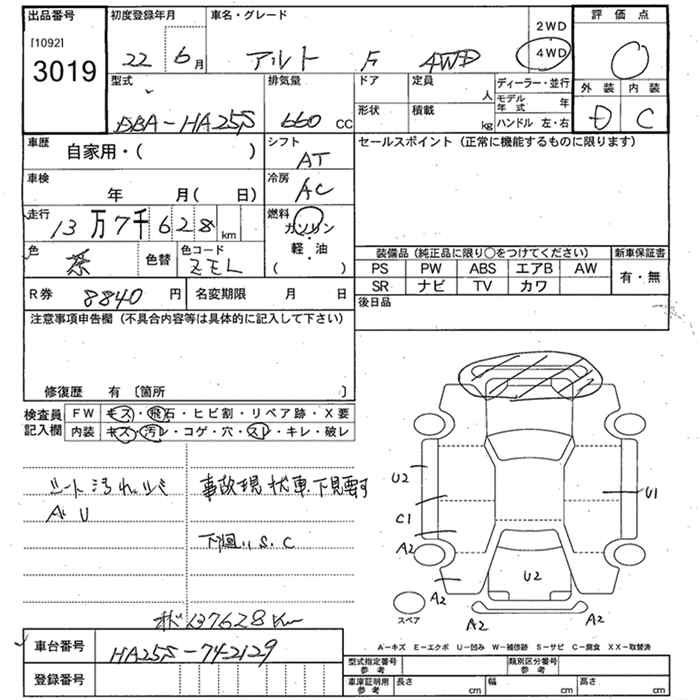 出品番号 初度登録年月 車名・グレード 評価点
[1092] 2WD
3019 22 6月 アルト F 4WD 4WD
型式 排気量 ドア 定員 人 ディーラー・並行 外装 内装
モデル年式 年
DBA-HA25S 660 CC 形状 積載 kg ハンドル 左・右 D C
車歴 自家用・( ) シフト セールスポイント (正常に機能するものに限ります)
AT
車検 年 月( 日) 冷房 AC
走行 13万7千628 km 燃料 ガソリン
軽・油
( )
色 茶 色替 色コード ZEL
装備品 (純正品に限り○をつけてください) 新車保証書
PS PW ABS エアB AW 有・無
SR ナビ TV カワ
R券 8840 円 名変期限 月 日 後日品
注意事項申告欄 (不具合内容等は具体的に記入して下さい)
修復歴 有 〔箇所 〕
検査員記入欄 FW キズ・飛石・ヒビ割・リペア跡・X要
内装 キズ・汚レ・コゲ・穴・スレ・キレ・破レ
シート汚れ
A U
事故現状車下見要す
下廻り S.C
U2
C1
A2
A2
U1
U2
A2
A2
スペア
137628Km
車台番号 HA25S-742129
登録番号
A-キズ E-エクボ U-凹み W-補修跡 S-サビ C-腐食 XX-取替済
型式指定番号 参考 類別区分番号 参考
車庫証明用 参考 長さ cm 幅 cm 高さ cm